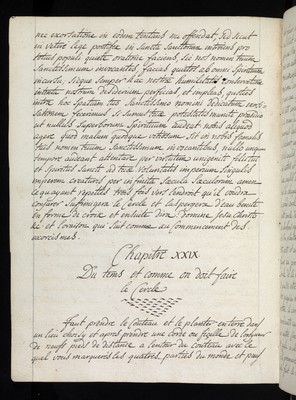 nec exorcistam in eodem tentans ne offendat, sed sicut
in vetere lege pontifex in sancta sanctorum intrans pro
totius populi quiete oratione faciens, sic nos nomen tuum
sanctissimum invocantes facias quietos ab omni spirituum
incursu, sicque semper hac nostra humilitatis conservetur
nostrum desiderium perficias, et implas, quatenus
intra hoc spatium tua sanctissimo nomini dedicatum
faciemus. Si tamen tua potestatis munere praeditus
ut nullus superborum spirituum audeat nobis aliquod
agere quod malum quodque. Sit in nobis famulis
tuis nomen tuum sanctissimum invocantibus, nullo unquam
tempore audeant attentare per virtutem unigeniti filii tui
et spiritus sancti ad tuae voluntatis imperium singulis
imperans creaturis per infinita saecula saeculorum amen
ce qu'ayant repetés trois fois vers l'endroit qu'il voudra
conjurer suffumigera le cercle et l'aspergera d'eau benite
en forme de croix et ensuite dire: Domine Jesu Christe
&c et l'oraison qui suit comme au commencement des
exorcismes.
Chapitre XXIX
Du tems et comme on doit faire
le Cercle
Faut prendre le couteau et le planter en terre dans
un lieu choisy et apres prendre une corde ou ficelle de longueur
de neuf pieds de distance a l'entour du couteau avec le
quel vous marquerés les quatres parties du monde et puis